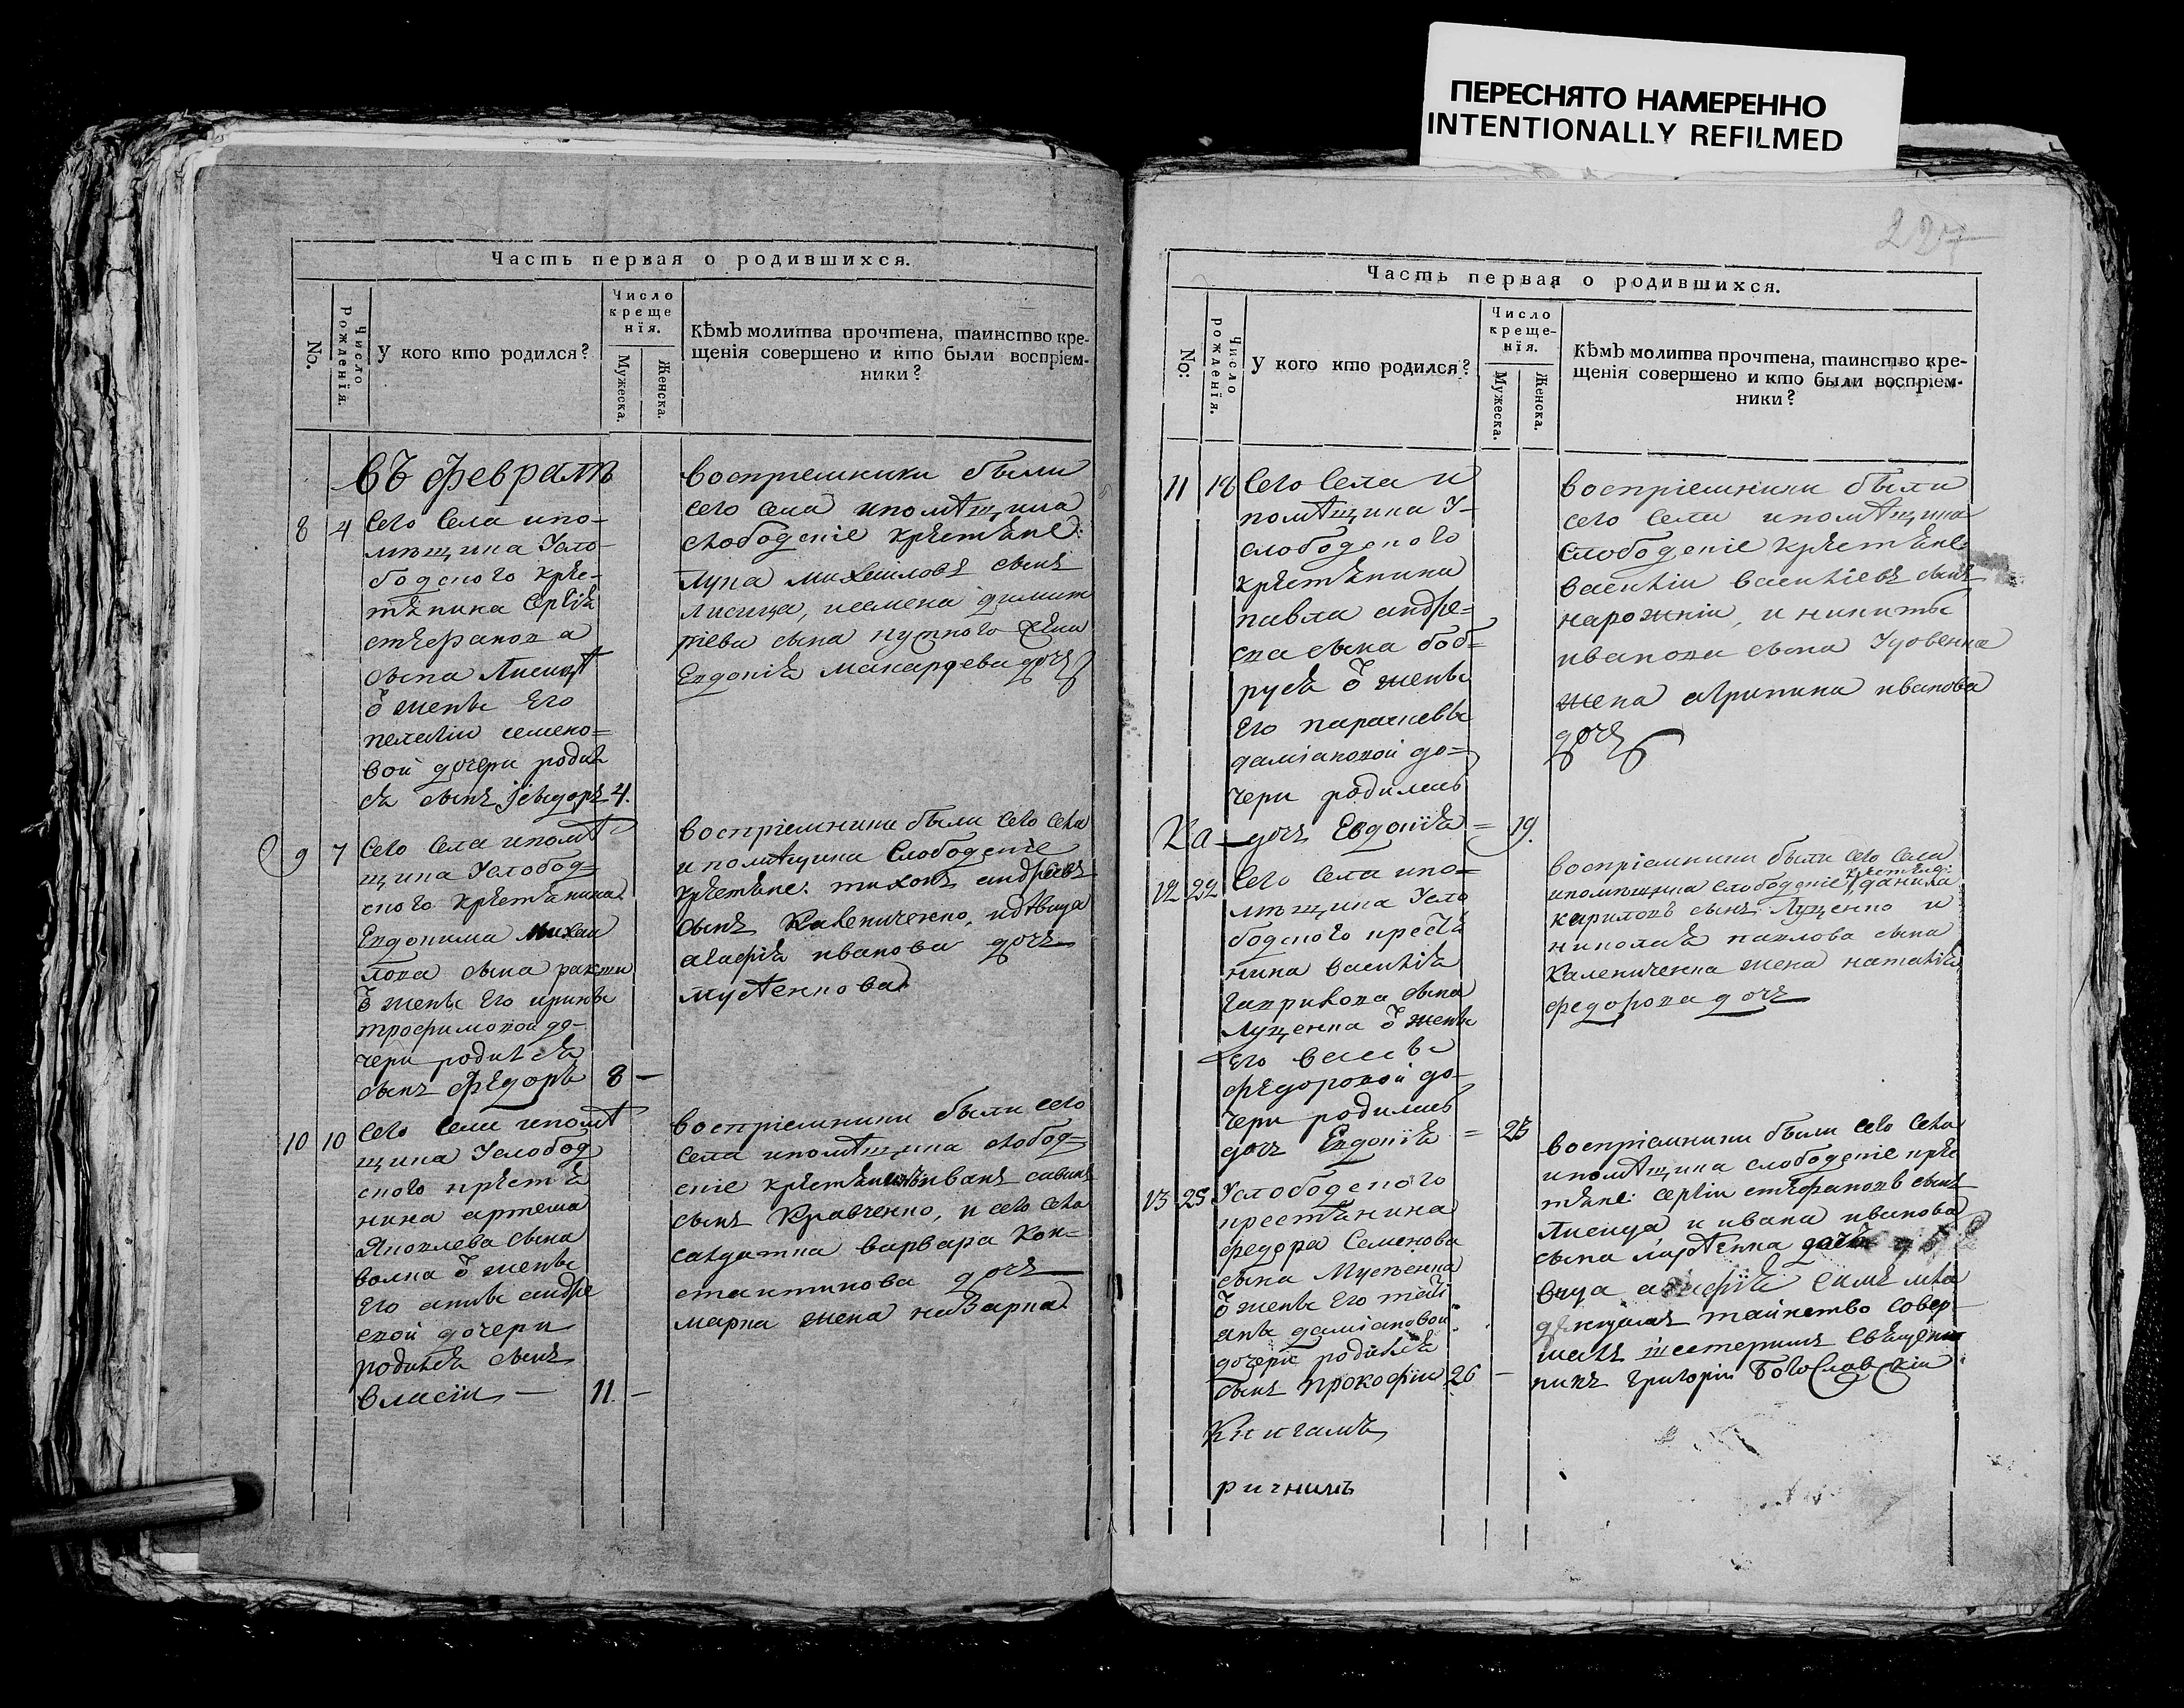 ПЕРЕСНЯТО НАМЕРЕННО
INTENTIONALLY REFILMED
227
Часть первая о родившихся.
No.
Число рожденїя.
У кого кто родился?
Число
креще
нїя.
Мужеска.
Женска.
Кѣмъ молитва прочтена, таинство кре-
щенія совершено и кто были воспріем-
ники?
въ февралѣ
8 4 Сего Села ипо-
мѣщика Усло-
бодского крѣс-
тянина Сергія
стефанова
сына Лисицы
ѿ жены Его
пелагіи семено-
вой дочери родил
ся сынъ Ісидоръ 4.
воспріемники были
сего села ипомѣщика
слободскіе крестяне:
Лука михайловъ сынъ
Лисица, исемена димит
ріева сына путного жена
Евдокія макарцева дочь
9 7 Сего Села ипомѣ
щика Услобод-
ского крестянина
Евдокима михаи
лова сына ракти
ѿ жены Его ирины
трофимовой до-
чери родился
сынъ Федоръ 8 —
воспріемники были сего села
и помѣщика Слободскіе
крестяне: тихонъ андреевъ
сынъ Калениченко, идѣвица
агафія иванова дочь
мустенкова
10 10 Сего Села ипомѣ
щика Услобод
ского крестя
нина артема
Яковлева Сына
волка ѿ жены
Его анны андре
евой дочери
родился сынъ
Власіи — 11. —
воспріемники были сего
села ипомѣщика слобод-
скіе иванъ савинъ
сынъ Кравченко, и сего села
салдатка варвара Кон-
стантинова дочь
марка жена назарка
Часть первая о родившихся.
No:
Число рожденїя.
У кого кто родился?
Число
креще-
нїя.
Мужеска.
Женска.
Кѣмъ молитва прочтена, таинство кре-
щенія совершено и кто были воспріем-
ники?
11 18 Сего Села и
помѣщика У-
слободского
крестянина
павла андре-
ева сына боб-
руся ѿ жены
Его параскевы
даміановой до-
чери родилась
дочь Евдокїя = 19.
воспріемники были
сего села ипомѣщика
Слободскіе крестяне:
василіи василіевъ сынъ
нарожніи, и никиты
иванова сына Удовенка
жена агрипина иванова
дочь
12 22 Сего Села ипо-
мѣщика Усло
бодского крестя
нина василія
гаврилова сына
Луценка ѿ жены
Его вассы
федоровой до-
чери родилась
дочь Евдокїя = 23
воспріемники были сего села
ипомѣщика слободскіе крестяне: данила
кириловъ сынъ Луценко и
николая павлова сына
Калениченка жена наталія
федорова дочь
13 25 Услободского
крестянина
федора Семенова
сына Мустенка
ѿ жены Его тати
яны даміановой
дочери родился
сынъ Прокофіи 26 —
воспріемники были сего села
ипомѣщика слободскіе крес
тяне: сергіи стефановъ сынъ
Лисица и ивана иванова
сына
таинство совер-
шалъ свящeн
никъ григоріи Богославскіи
Книгамъ
ричнимъ